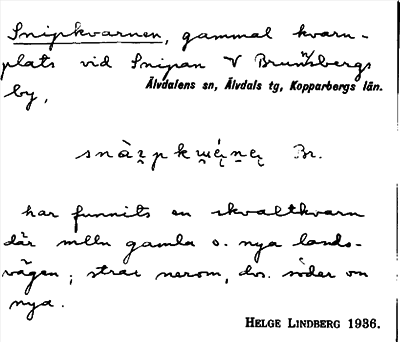 Snipkvarnen, gammal kvarn-
plats vid Snipan V Brunnsbergs
by,
Älvdalens sn, Älvdals tg, Kopparbergs län.
Br.
har funnits en skvaltkvarn
där melln gamla o. nya lands-
vägen; strax nerom, dvs. söder om
nya.
HELGE LINDBERG 1936.